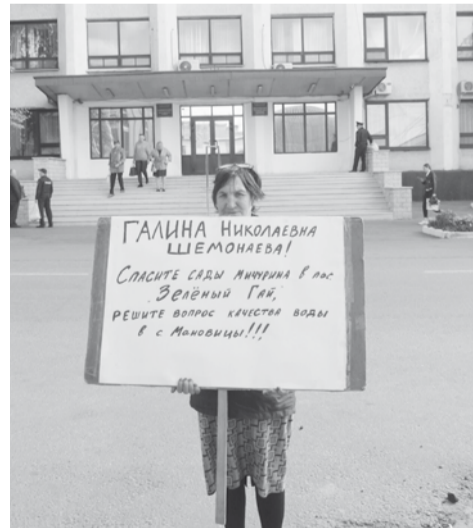 ГАЛИНА НИКОЛАЕВНА
ШЕМОНАЕВА!
СПАСИТЕ САДЫ МИЧУРИНА В пос
ЗЕЛЁНЫЙ ГАЙ,
РЕШИТЕ ВОПРОС КАЧЕСТВА ВОДЫ
в с МАНОВИЦЫ!!!